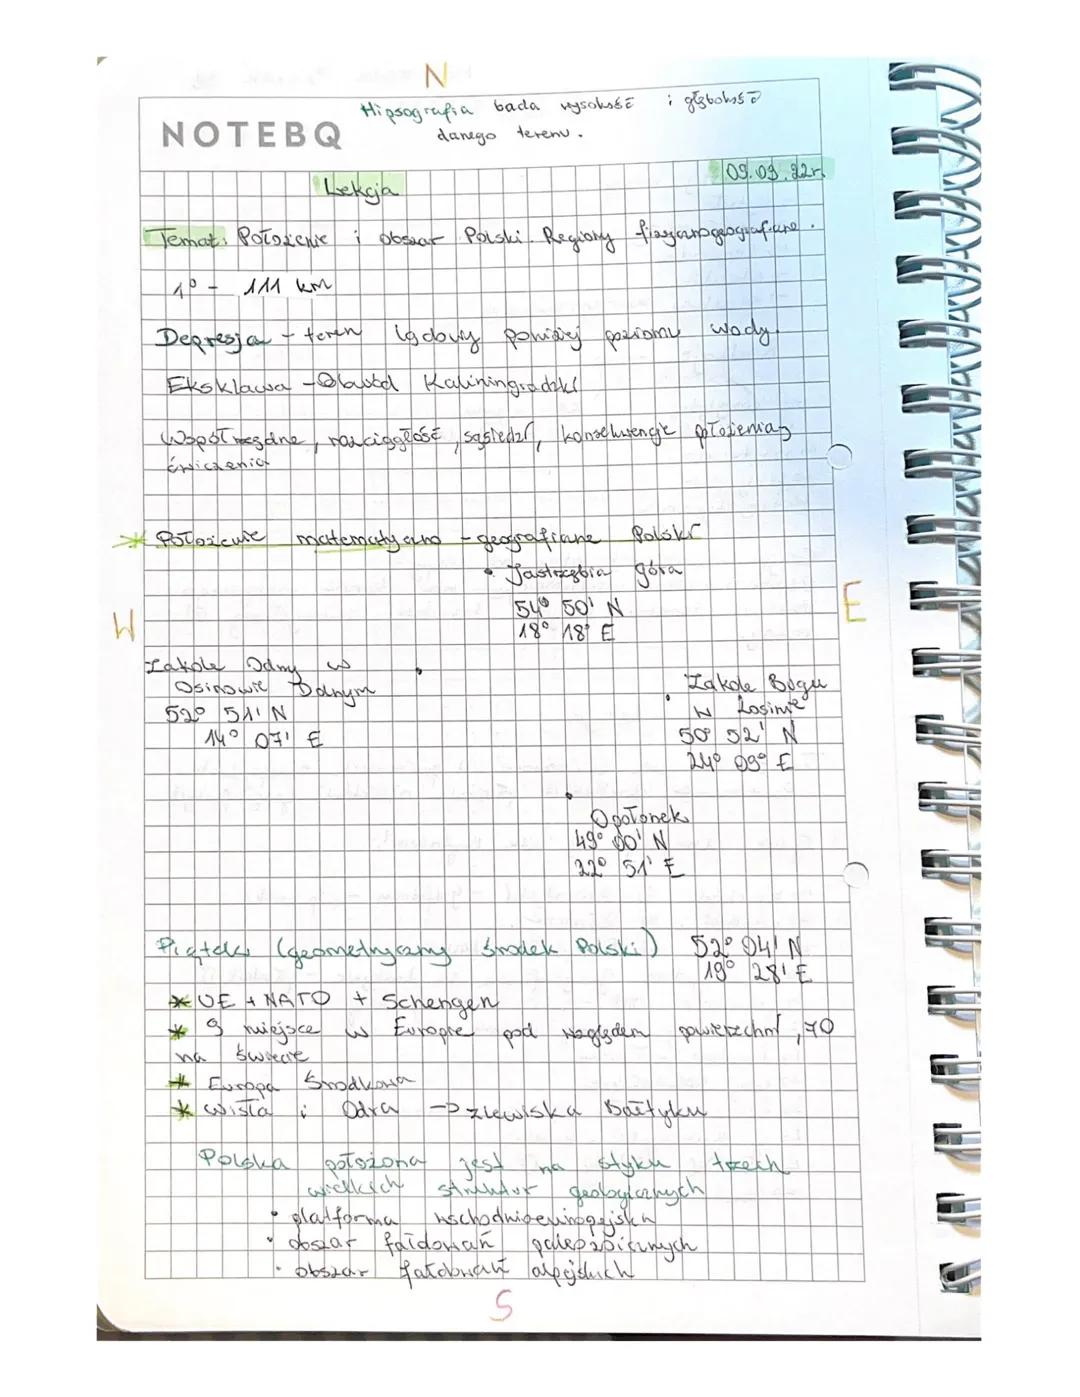 N
Hipsografia bada wysokość i głębokość
NOTEBQ
danego terenu.
09.09.22r.
Lekcja
Temat: Położenie i obszar Polski. Regiony fizycznogeograficzne.
1° - 111 km
Depresja - teren lądowy poniżej poziomu wody.
Eksklawa - Obwód Kaliningradzki
Współrzędne, rozciągłość, sąsiedzi, konsekwencje położenia,
ćwiczenia
Położenie matematyczno - geograficzne Polski
• Jastrzębia góra
54° 50' N
18° 18' E
E
W
Zakole Odry w
Osinowie Dolnym
52° 51' N
14° 07' E
• Zakole Bugu
w Zosinie
50° 52' N
24° 09° E
Opołonek
49° 00' N
22° 51' E
Piątek (geometryczny środek Polski) 52° 04' N
19° 28' E
* UE + NATO + Schengen
* 9 miejsce w Europie pod względem powierzchni, 70
na świecie
* Europa Środkowa
* Wisła i Odra -> zlewiska Bałtyku
Polska położona jest na styku trzech
wielkich struktur geologicznych
• platforma wschodnioeuropejska
• obszar fałdowań paleozoicznych
• obszar fałdowań alpejskich
S